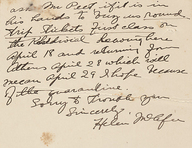 ask Mr Peet if it is in
his hands to buy us round
trip tickets first class on
the Rotterdam leaving here
April 18 and returning from
Athens April 28 which will
mean April 29 I hope because
of the quarantine.
Sorry to trouble you
Sincerely
Helen